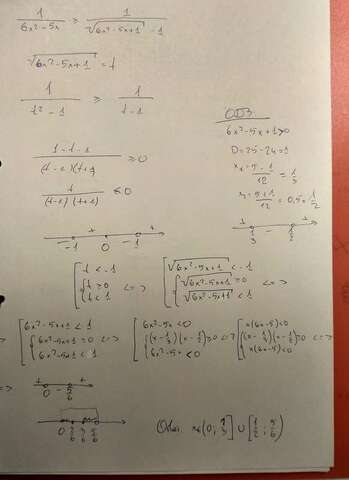 1/(6x²-5x) ≥ 1/(√(6x²-5x+1) - 1)
√(6x²-5x+1) = t
1/(t²-1) ≥ 1/(t-1)
(1-t-1)/((t-1)(t+1)) ≥ 0
t/((t-1)(t+1)) ≤ 0
ОДЗ
6x²-5x+1>0
D=25-24=1
x₁=(5-1)/12=1/3
x₂=(5+1)/12=0,5=1/2
+ - +
1/3 1/2
- + - +
-1 0 1
[ t<-1 { t≥0 t<1 <=> [ √(6x²-5x+1) < -1 { √(6x²-5x+1) ≥0 √(6x²-5x+1) <1 <=>
=> [ 6x²-5x+1 < 1 { 6x²-5x+1 ≥0 6x²-5x+1 < 1 <=> [ 6x²-5x<0 { (x-1/3)(x-1/2)≥0 6x²-5x<0 <=> [ x(6x-5)<0 { (x-1/3)(x-1/2)≥0 x(6x-5)<0 <=>
=> + - +
0 5/6
0 2/6 3/6 5/6
Ответ: x∈(0; 1/3] ∪ [1/2; 5/6)